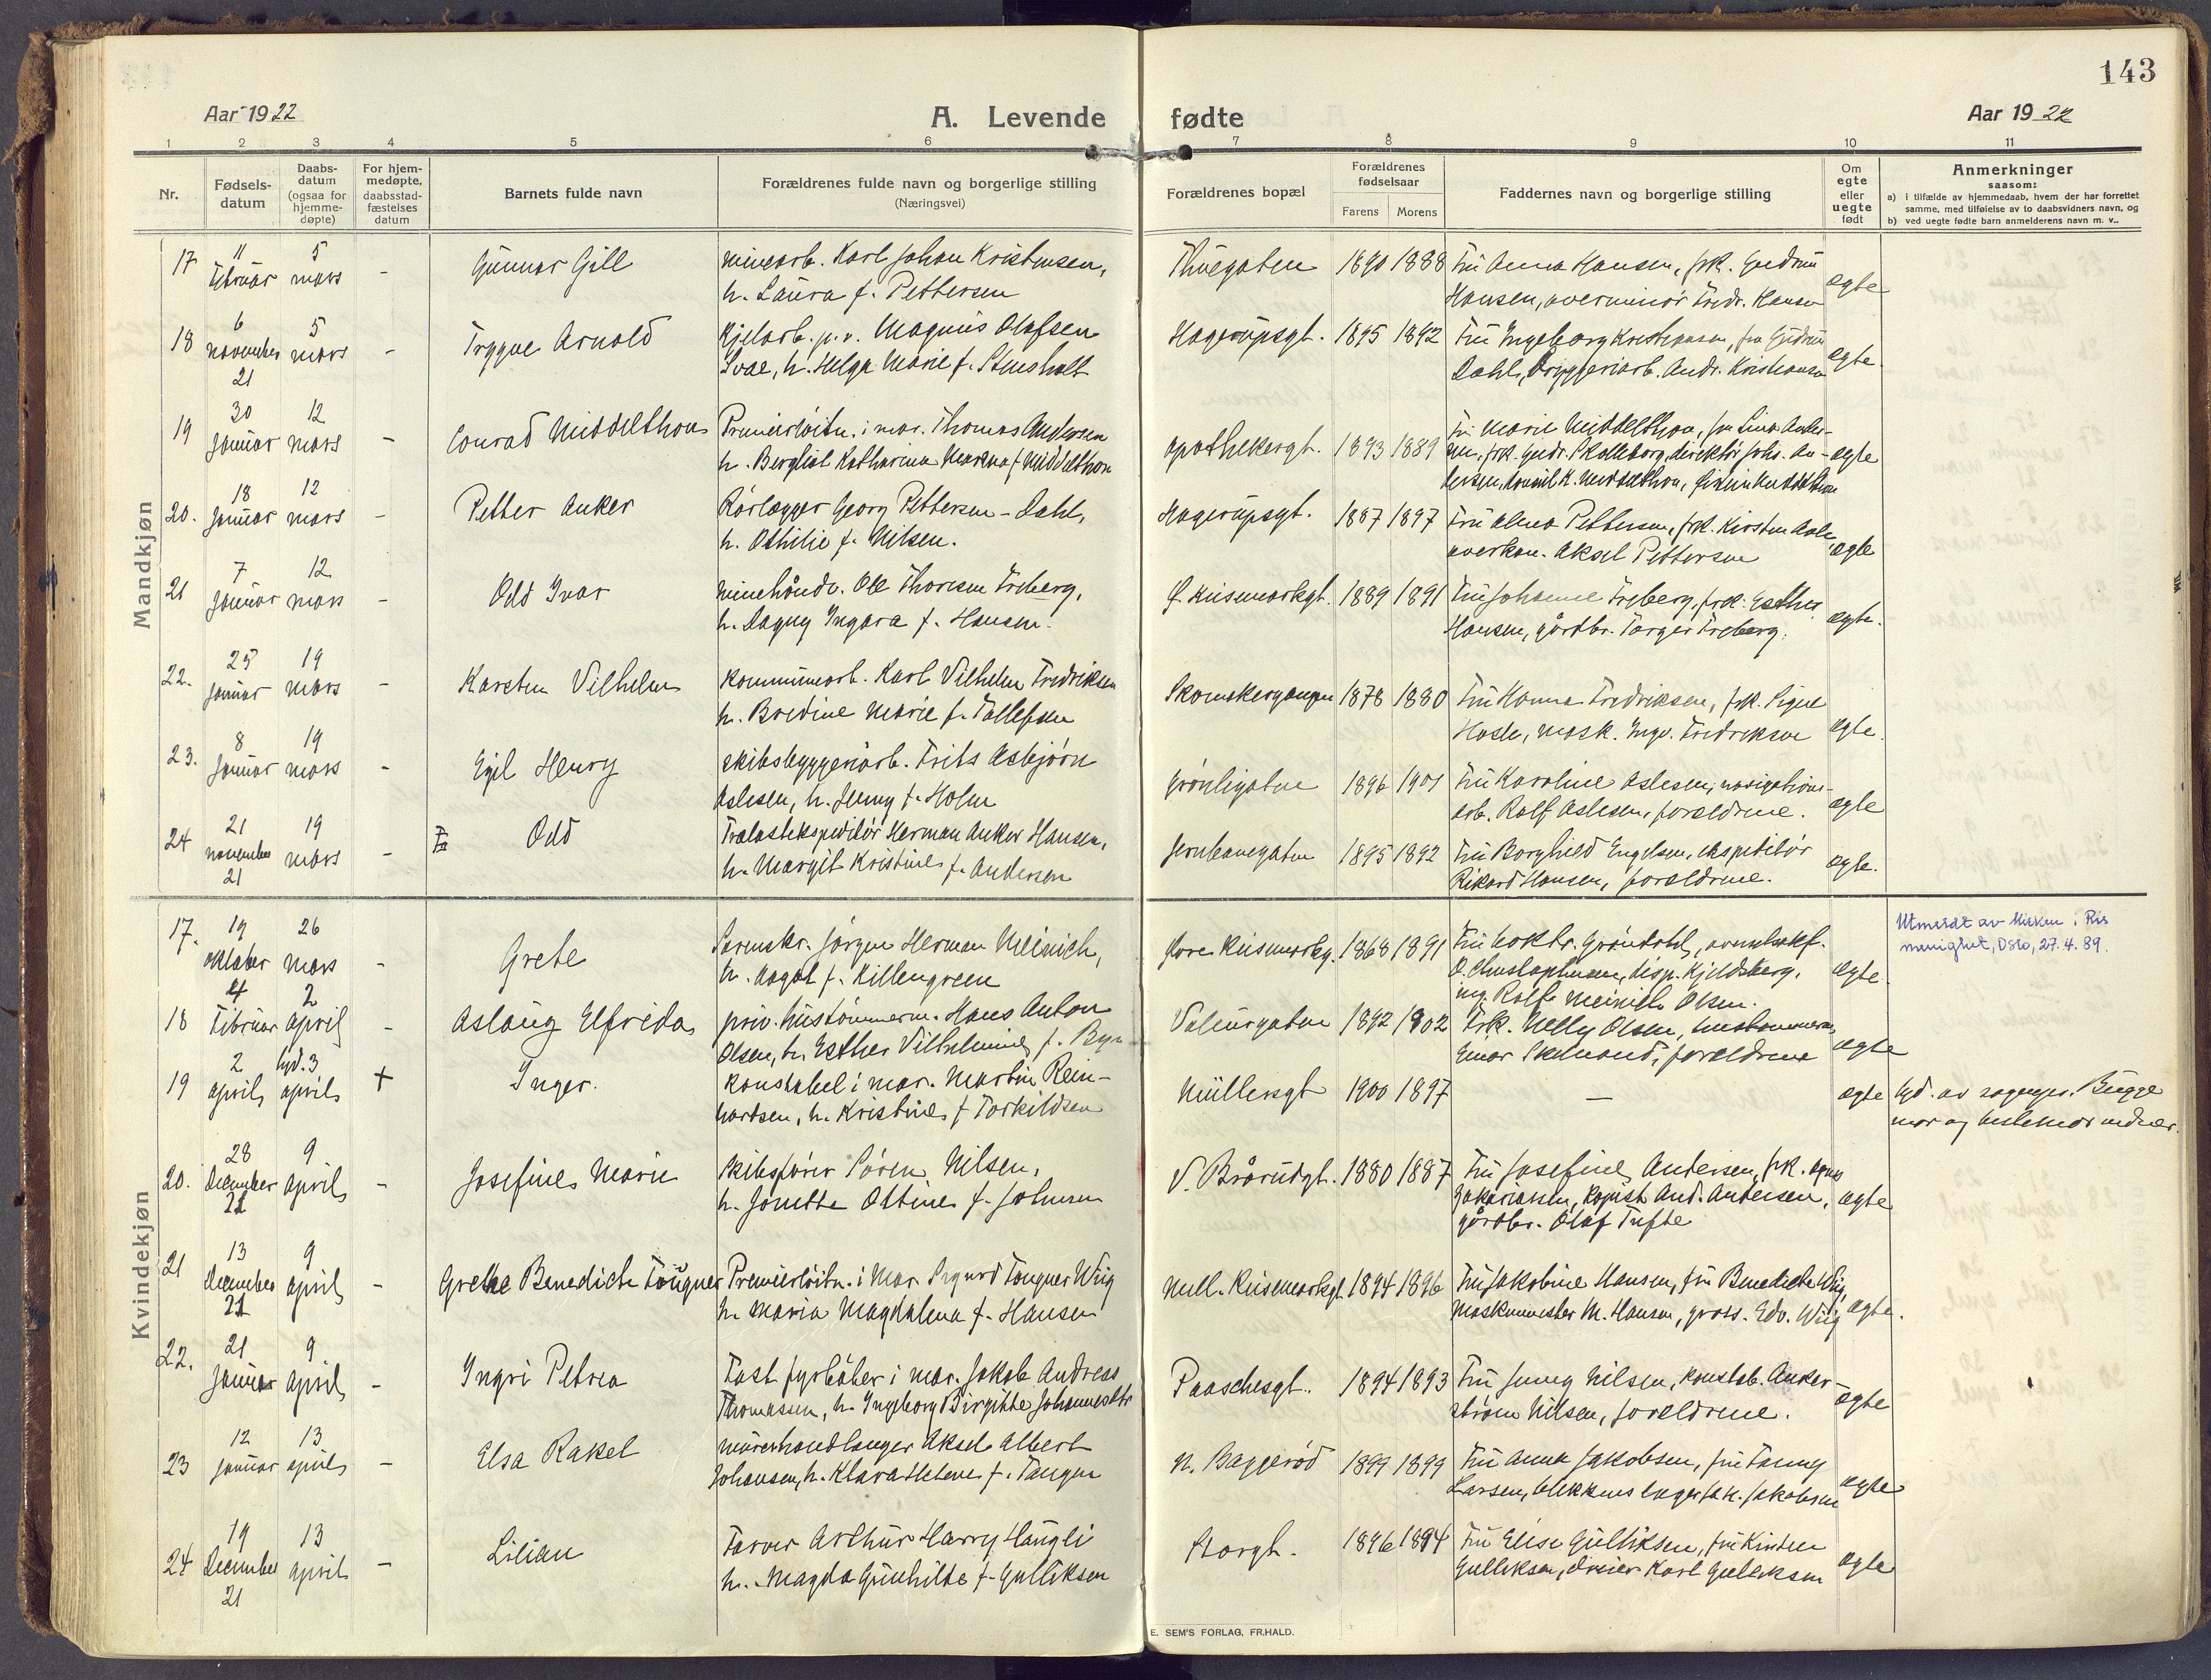 143
Aar 1922
A. Levende fødte
Aar 1922
1 2 3 4 5 6 7 8 9 10 11
Nr.
Fødsels-datum
Daabs-datum (ogsaa for hjemme-døpte)
For hjem-medøpte, daabsstad-fæstelses datum
Barnets fulde navn
Forældrenes fulde navn og borgerlige stilling (Næringsvei)
Forældrenes bopæl
Forældrenes fødselsaar
Farens Morens
Faddernes navn og borgerlige stilling
Om egte eller uegte født
Anmerkninger
saasom:
a) i tilfælde av hjemmedaab, hvem der har forrettet samme, med tilføielse av to daabsvidners navn, og
b) ved uegte fødte barn anmelderens navn m. v..
Mandkjøn
17 11 Februar 5 mars - Gunnar Gill
minearb. Karl Johan Kristensen,
h. Laura f. Pettersen
Thuegaten 1890 1888
Fru Anna Hansen, frk. Gudrun
Hansen, overminør Fredr. Hansen
egte
18 6 november 21 5 mars - Trygve Arnold
Kjelarb. p. v. Magnus Olafsen
Svae, h. Helga Marie f. Stensholt
Hagerupsgt. 1895 1892
Fru Ingeborg Kristiansen, fru Gudrun
Dahl, bryggeriarb. Andr. Kristiansen
egte
19 30 Januar 12 mars - Conrad Middelthon
Premierløitn. i mar. Thomas Andersen
h. Bergliot Katharina f. Middelthon
apothekergt. 1893 1889
Fru Marie Middelthon, fru Lina Ander-
sen, frk. Gudr. Skolleborg, direktør Johs. An-
dersen, konsul K. Middelthon,
egte
20. 18 Januar 12 mars - Petter Anker
Rørlægger Georg Pettersen-Dahl,
h. Othilie f. Nilsen.
Hagerupsgt. 1887 1897
Fru Alma Pettersen, frk. Kirsten
overkon. Aksel Pettersen
egte
21 7 Januar 12 mars - Odd Ivar
minehåndv. Ole Thoresen Freberg,
h. Dagny Ingara f. Hansen.
Ø. Kiisemarkgt. 1889 1891
Fru Johanne Freberg, frk. Esther
Hansen, gårdbr. Torger Freberg.
egte.
22. 25 Januar 19 mars - Karsten Vilhelm
Kommunearb. Karl Vilhelm Fredriksen
h. Bredine Marie f. Tollefsen
Skomakergangen 1878 1880
Fru Hanna Fredriksen, frk. Signe
Hasle, mask. Ingv. Fredriksen
egte.
23. 8 Januar 19 mars - Egil Henry
skibsbyggeriarb. Frits Asbjørn
Aslesen, h. Jenny f. Holm
Grønligaten 1896 1901
Fru Karoline Aslesen, navigations-
arb. Rolf Aslesen, forældrene.
egte
24 21 november 21 19 mars - Odd
Trælastekspeditør Herman Anker Hansen,
h. Margit Kristine f. Andersen
Jernbanegaten 1895 1892
Fru Borghild Engelsen, ekspeditør
Rikard Hansen, forældrene.
egte.
Kvindekjøn
17. 19 oktober 26 mars - Grete
Sorenskr. Jørgen Herman Meinich,
h. Aagot f. Killengreen
1868 1891
Fru Grøndahl,
O. Christophersen, disp. Kjeldsberg,
ing. Rolf Meinich Olsen.
egte.
Utmeldt av kirken i Ris
menighet, Oslo, 27.4.89.
18 4 Februar 2 april - Aslaug Elfrida
priv. hustømmerm. Hans Anton
Olsen, h. Esther Vilhelmine f.
Valeurgaten 1892 1902
Frk. Nelly Olsen, hustømmerm.
Einar forældrene
egte
19 2 april hjd. 3 april + Inger.
Konstabel i mar. Martin Rein-
hardsen, h. Kristine f Torkildsen
Müllersgt 1900 1897
—
egte
hjd. av sogneprs. Bugge
mor og bestemor
20. 28 December 21 9 april - Josefine Marie
Skibsfører Søren Nilsen,
h. Jonette Ottine f. Johnsen
V. Brårudgt. 1880 1887
Fru Josefine Andersen, frk. Agnes
Zakariassen, kopist And. Andersen,
gårdbr. Olaf Tufte
egte
21 13 December 21 9 april - Grethe Benedicte Fougner
Premierløitn. i mar. Sigurd Fougner Wiig
h. Maria Magdalena f. Hansen
Mell. Kiisemarkgt. 1894 1896
Fru Jakobine Hansen, fru Benedicte Wiig,
Maskinmester M. Hansen, gross. Edv. Wiig
egte.
22. 21 Januar 9 april - Ingri Petrea
Fast fyrbøter i mar. Jakob Andreas
Thomassen, h. Ingeborg Birgitte Johannesdtr
Paaschesgt. 1894 1893
Fru Jenny Nilsen, konstab. Anker-
strøm Nilsen, forældrene.
egte
23 12 Januar 13 april - Elsa Rakel
murerhandlanger Aksel Albert
Johansen, h. Klara Helene f. Tangen
N. Baggerød 1899 1899
Fru Anna Jakobsen, fru Fanny
Larsen, blikkenslager Jak. Jakobsen
egte
24 19 December 21 13 april - Lilian
Farver Arthur Harry Haugli
h. Magda Gunhilde f. Gulliksen
Storgt. 1896 1894
Fru Elise Gulliksen, fru Kirsten
Gulliksen, dreier Karl Gulliksen
egte
E. SEM'S FORLAG, FR.HALD.